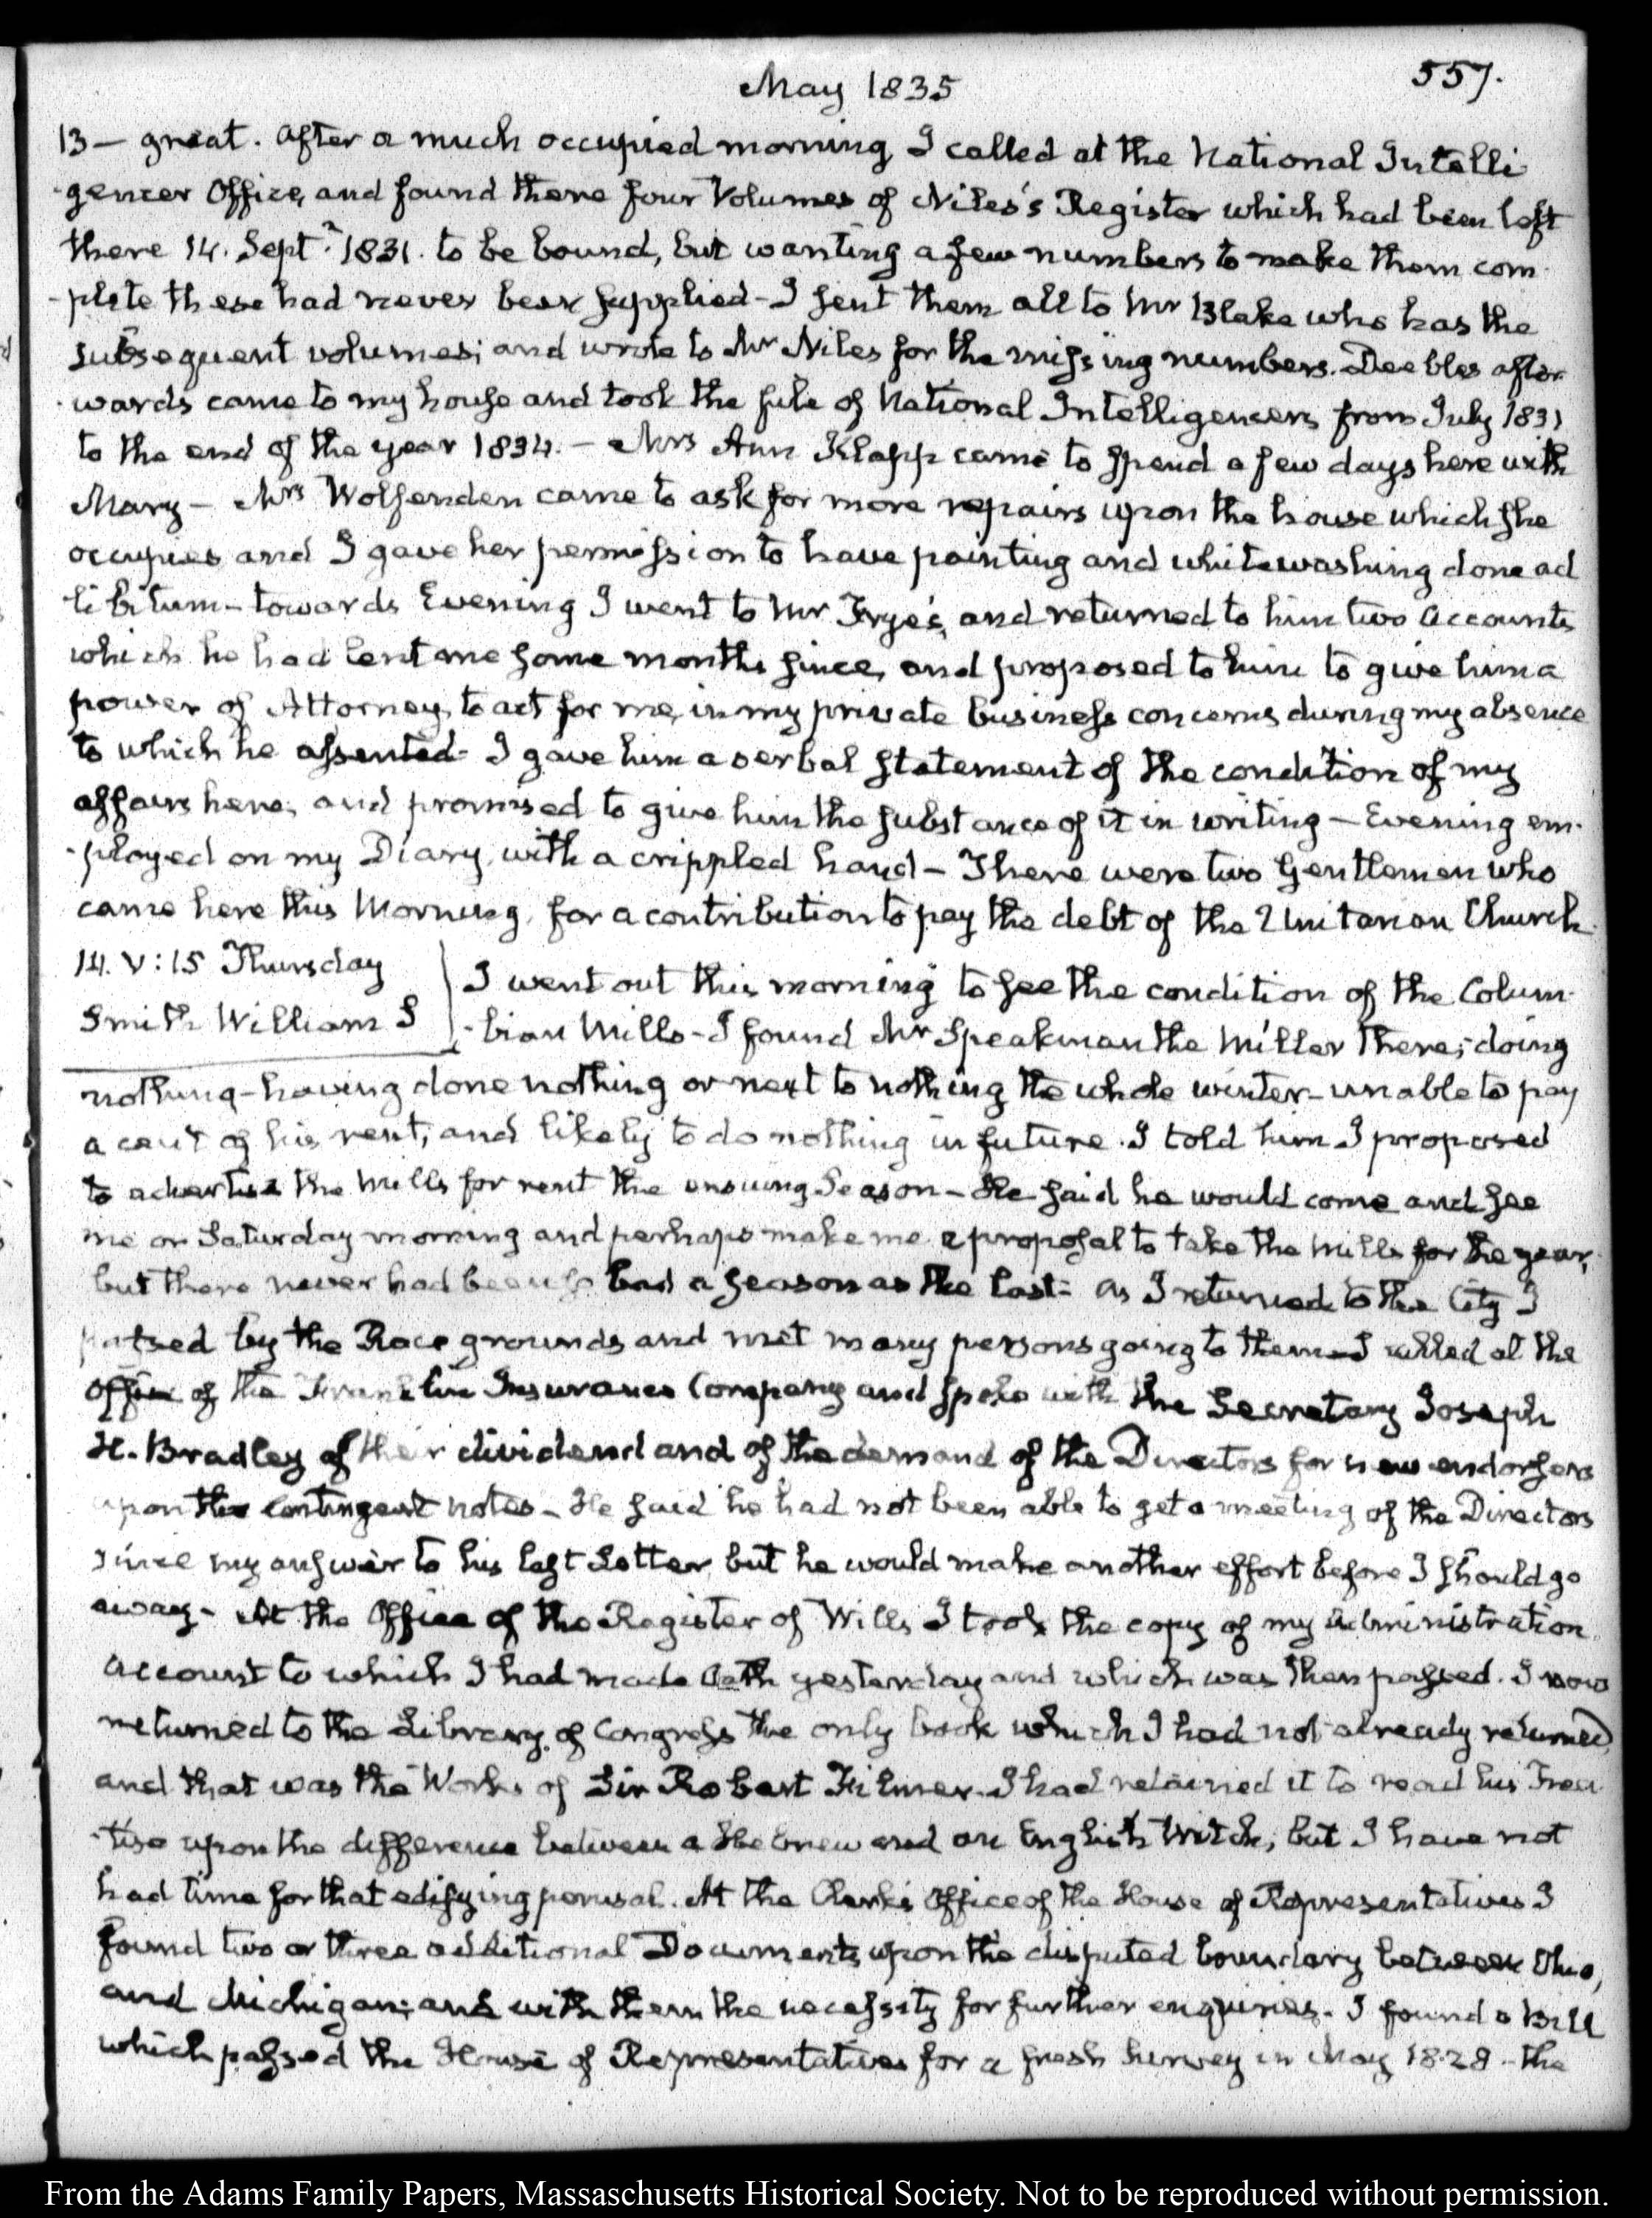 May 1835
557.
13 — great. After a much occupied morning I called at the National Intelli
-gencer Office, and found there four Volumes of Niles's Register which had been left
there 14. Septr. 1831. to be bound, but wanting a few numbers to make them com
-plete these had never been supplied - I sent them all to Mr Blake who has the
subsequent volumes; and wrote to Mr Niles for the missing numbers. Deebles after
-wards came to my house and took the file of National Intelligencers from July 1831
to the end of the year 1834. — Mrs Ann Klapp came to spend a few days here with
Mary — Mrs Wolfenden came to ask for more repairs upon the house which she
occupies and I gave her permission to have painting and whitewashing done ad
libitum - towards Evening I went to Mr Frye's, and returned to him two Accounts
which he had lent me some months since, and proposed to him to give him a
power of Attorney, to act for me, in my private business concerns during my absence
to which he assented - I gave him a verbal statement of the condition of my
affairs here, and promised to give him the substance of it in writing — Evening em-
-ployed on my Diary, with a crippled hand — There were two Gentlemen who
came here this Morning, for a contribution to pay the debt of the Unitarian Church.
14. V:15 Thursday
Smith William S
I went out this morning to see the condition of the Colum-
-bian Mills - I found Mr Speakman the Miller there; doing
nothing - having done nothing or next to nothing the whole winter - unable to pay
a cent of his rent, and likely to do nothing in future. I told him I proposed
to advertise the Mills for rent the ensuing Season — He said he would come and see
me on Saturday morning and perhaps make me a proposal to take the Mills for the year,
but there never had been so bad a season as the last - As I returned to the City I
passed by the Race grounds and met many persons going to them - I called at the
Office of the Franklin Insurance Company and spoke with the Secretary Joseph
H. Bradley of their dividend and of the demand of the Directors for new endorsers
upon the contingent notes - He said he had not been able to get a meeting of the Directors
since my answer to his last Letter but he would make another effort before I should go
away - At the Office of the Register of Wills I took the copy of my administration
Account to which I had made Oath yesterday and which was then passed. I now
returned to the Library of Congress the only book which I had not already returned,
and that was the Works of Sir Robert Filmer. I had retained it to read his Trea
-tise upon the difference between a Hebrew and an English Witch, but I have not
had time for that edifying perusal. At the Clerk's Office of the House of Representatives I
found two or three additional Documents upon the disputed boundary between Ohio,
and Michigan; and with them the necessity for further enquiries. I found a Bill
which passed the House of Representatives for a fresh Survey in May 1828 - the
From the Adams Family Papers, Massaschusetts Historical Society. Not to be reproduced without permission.